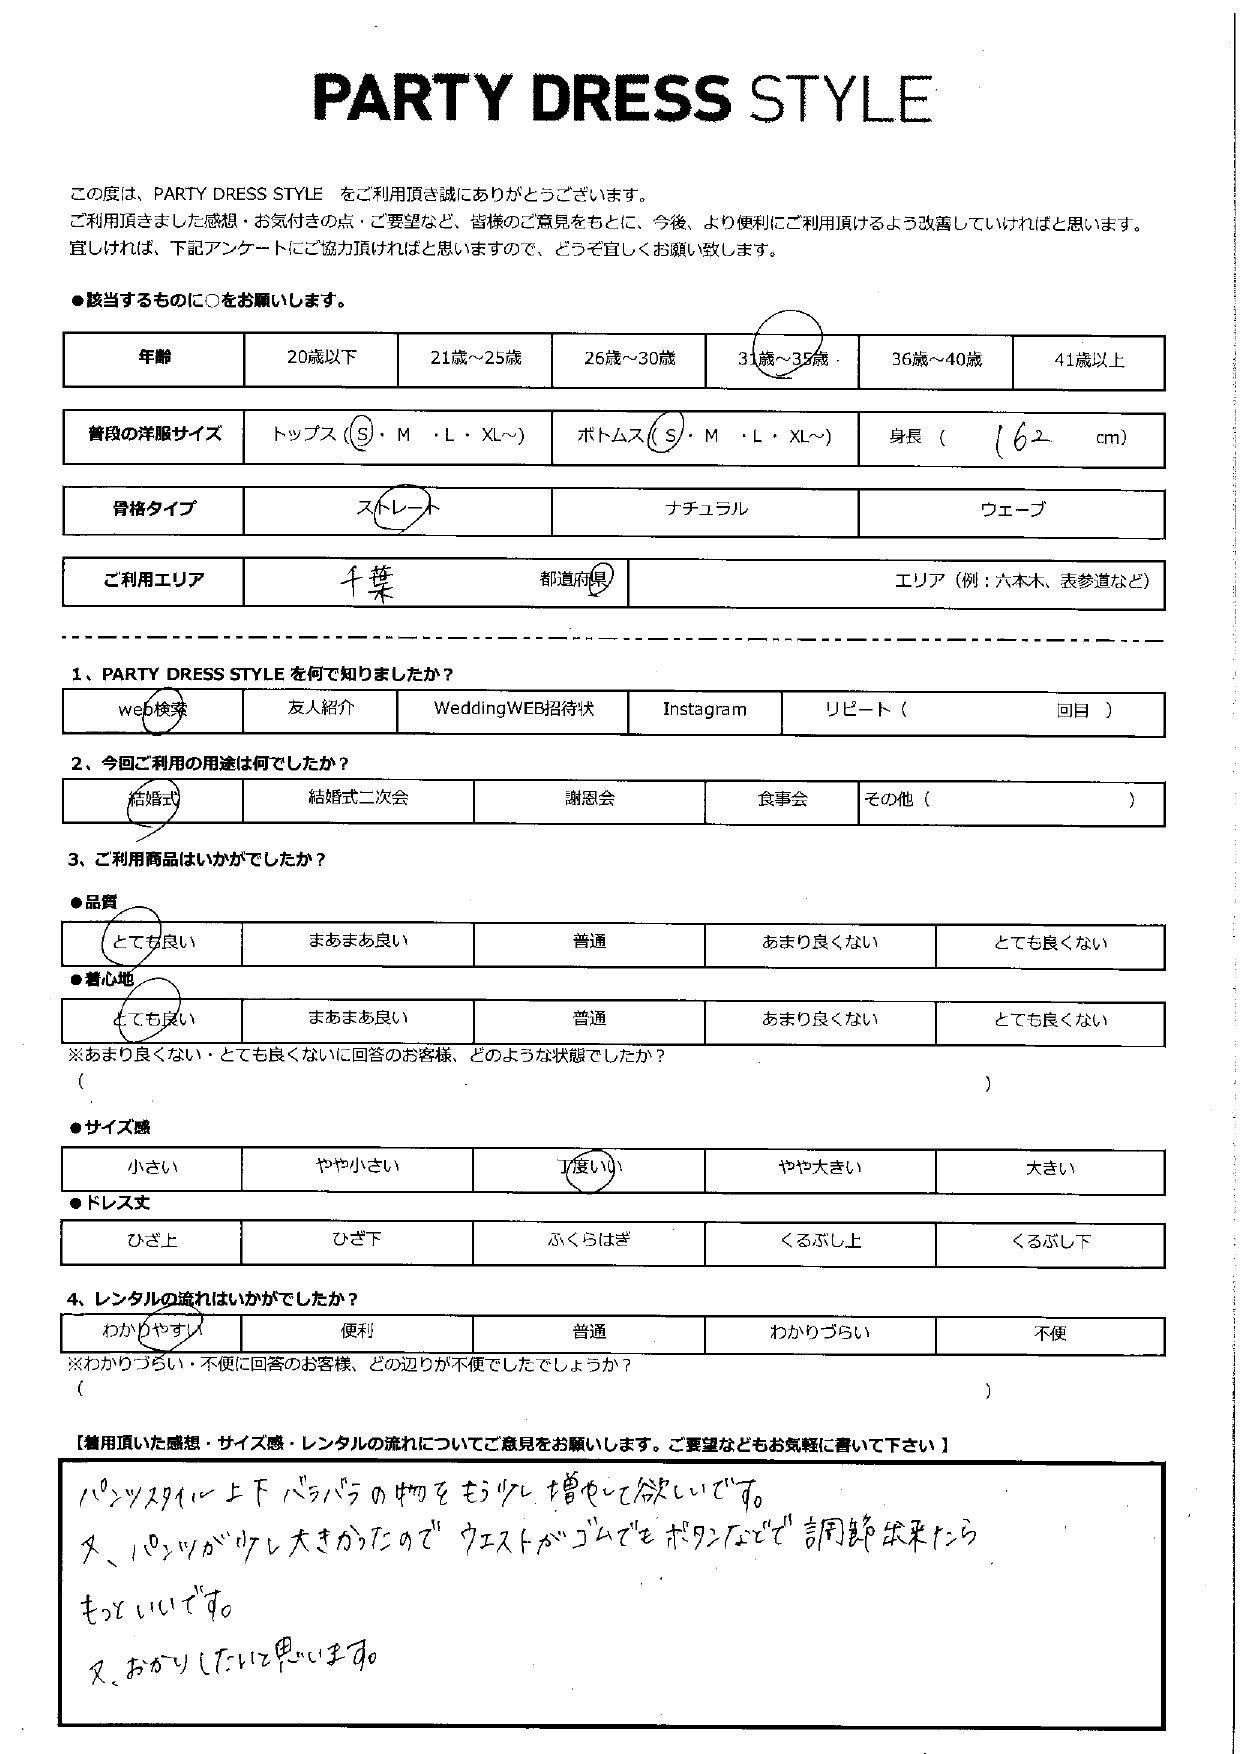 PARTY DRESS STYLE
この度は、PARTY DRESS STYLE をご利用頂き誠にありがとうございます。
ご利用頂きました感想・お気付きの点・ご要望など、皆様のご意見をもとに、今後、より便利にご利用頂けるよう改善していければと思います。
宜しければ、下記アンケートにご協力頂ければと思いますので、どうぞ宜しくお願い致します。
●該当するものに○をお願いします。
年齢 20歳以下 21歳～25歳 26歳～30歳 31歳～35歳 36歳～40歳 41歳以上
普段の洋服サイズ トップス (S・ M ・L・ XL～) ボトムス ( S・ M ・L・ XL～) 身長 ( 162 cm)
骨格タイプ ストレート ナチュラル ウェーブ
ご利用エリア 千葉 都道府県 エリア（例：六本木、表参道など）
1、PARTY DRESS STYLE を何で知りましたか？
web検索 友人紹介 WeddingWEB招待状 Instagram リピート（ 回目 ）
2、今回ご利用の用途は何でしたか？
結婚式 結婚式二次会 謝恩会 食事会 その他（ ）
3、ご利用商品はいかがでしたか？
●品質
とても良い まあまあ良い 普通 あまり良くない とても良くない
●着心地
とても良い まあまあ良い 普通 あまり良くない とても良くない
※あまり良くない・とても良くないに回答のお客様、どのような状態でしたか？
（ ）
●サイズ感
小さい やや小さい 丁度いい やや大きい 大きい
●ドレス丈
ひざ上 ひざ下 ふくらはぎ くるぶし上 くるぶし下
4、レンタルの流れはいかがでしたか？
わかりやすい 便利 普通 わかりづらい 不便
※わかりづらい・不便に回答のお客様、どの辺りが不便でしたでしょうか？
（ ）
【着用頂いた感想・サイズ感・レンタルの流れについてご意見をお願いします。ご要望などもお気軽に書いて下さい】
パンツスタイル 上下 バラバラの物をもう少し増やして欲しいです。
又、パンツが少し大きかったので ウエストがゴムでもボタンなどで調節出来たら
もっといいです。
又、おかりしたいと思います。